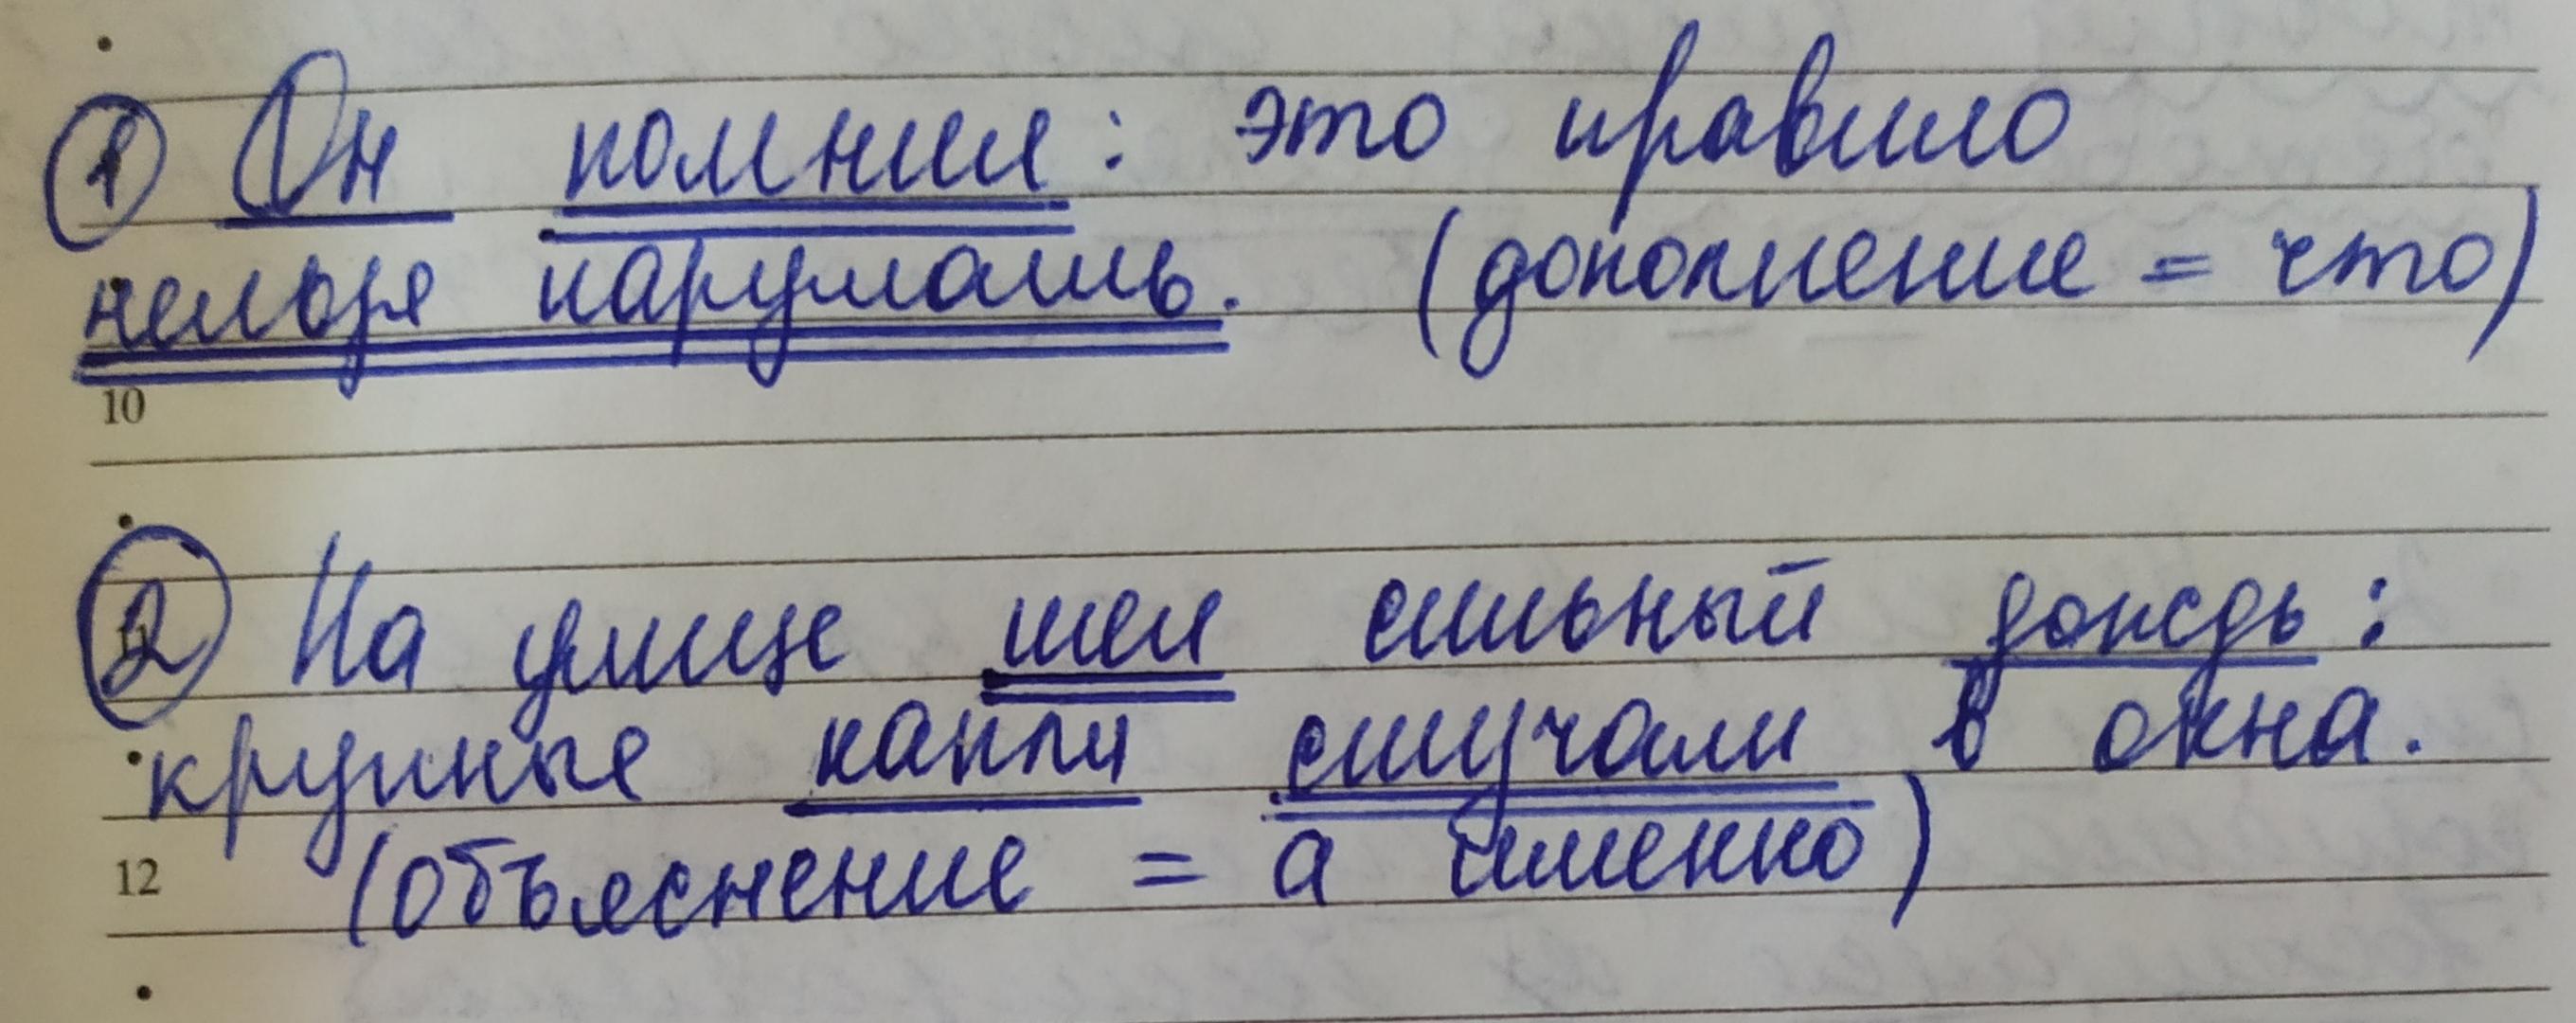 ① Он помнил: это правило
нельзя нарушать. (дополнение = что)
10
② На улице шел сильный дождь:
крупные капли стучали в окна.
12 (объяснение = а именно)